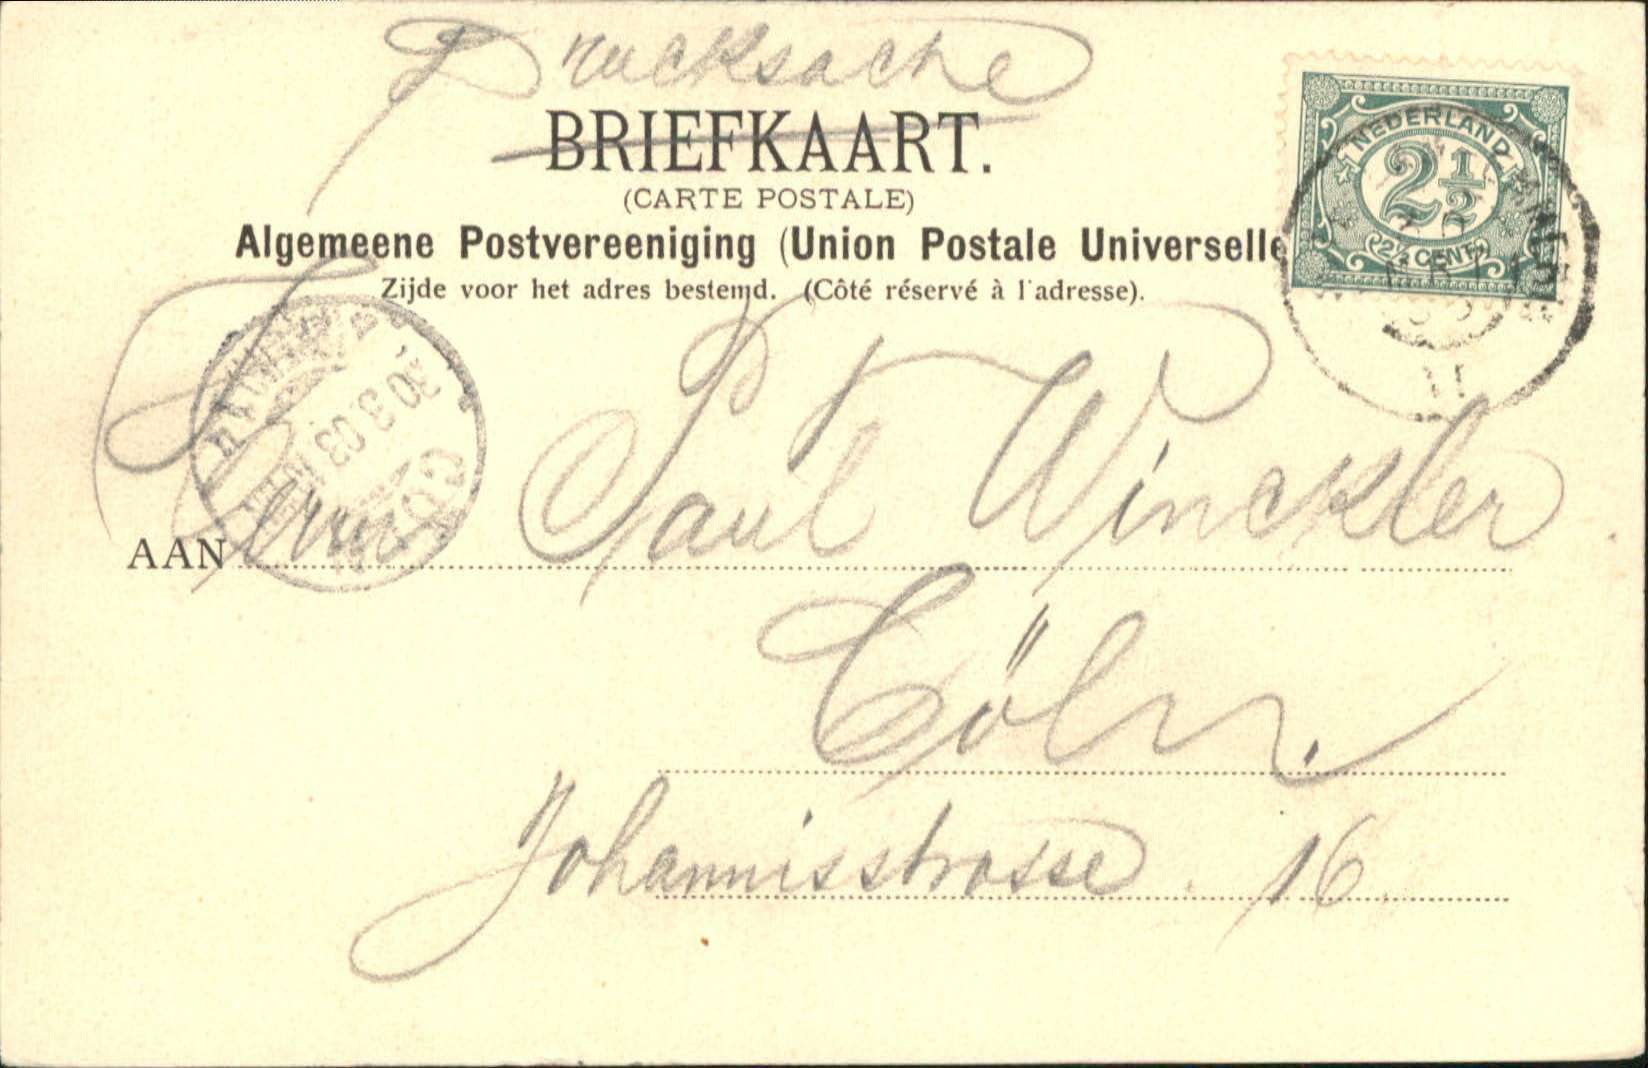 Drucksache
BRIEFKAART.
(CARTE POSTALE)
Algemeene Postvereeniging (Union Postale Universelle
Zijde voor het adres bestemd. (Côté réservé à l'adresse).
NEDERLAND
2 1/2
2 1/2 CENT
30.3.03
AAN Herrn Paul Winckler
Cöln.
Johannisstrasse. 16.